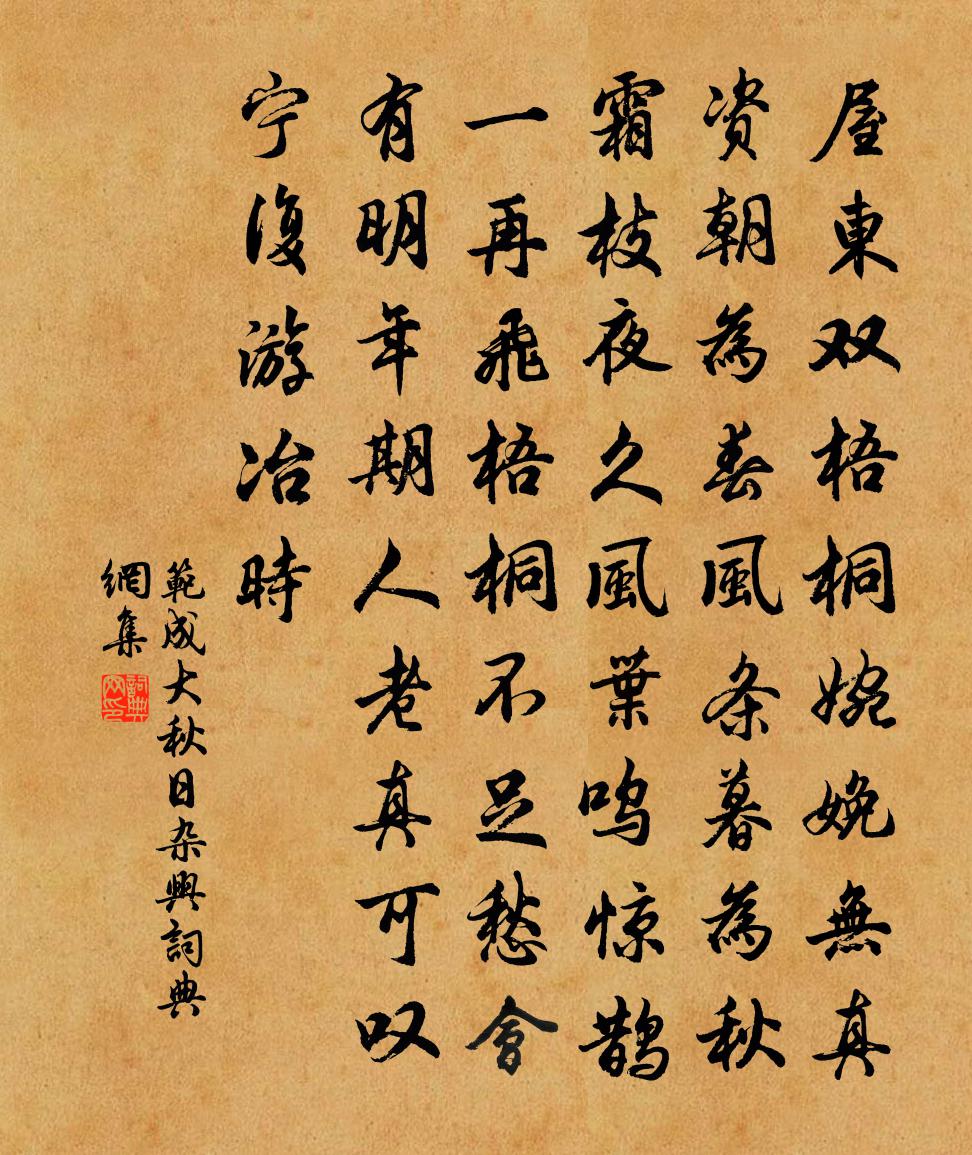 屋東双梧桐婉娩無真
资朝為春風条暮為秋
霜枝夜久風葉鸣惊鹊
一再飛梧桐不足愁會
有明年期人老真可叹
宁復游冶時
範成大秋日杂興詞典
網集
詞典網印